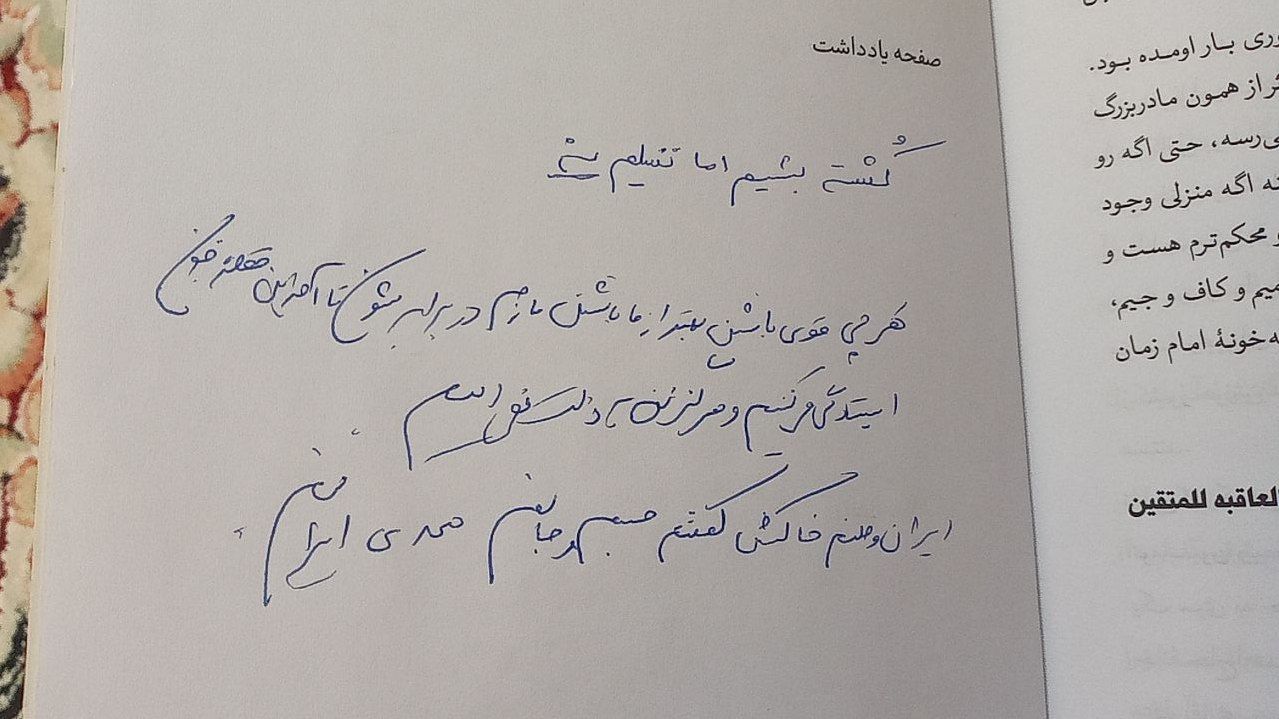 صفحه یادداشت
کُشته بشیم اما تسلیم نه
هر چی قوی باشن بهتر از ما باشن بازم در برابرشون تا آخرین قطره خون
ایستادگی می‌کنیم و هرگز زیر
ایران وطنم خاکش کفنم جسمم و جانم
وری بار اومده بود.
از همون مادربزرگ
ی‌رسه، حتی اگه رو
اگه منزلی وجود
محکم‌ترم هست و
میم و کاف و جیم،
ه خونهٔ امام زمان
لعاقبه للمتقین